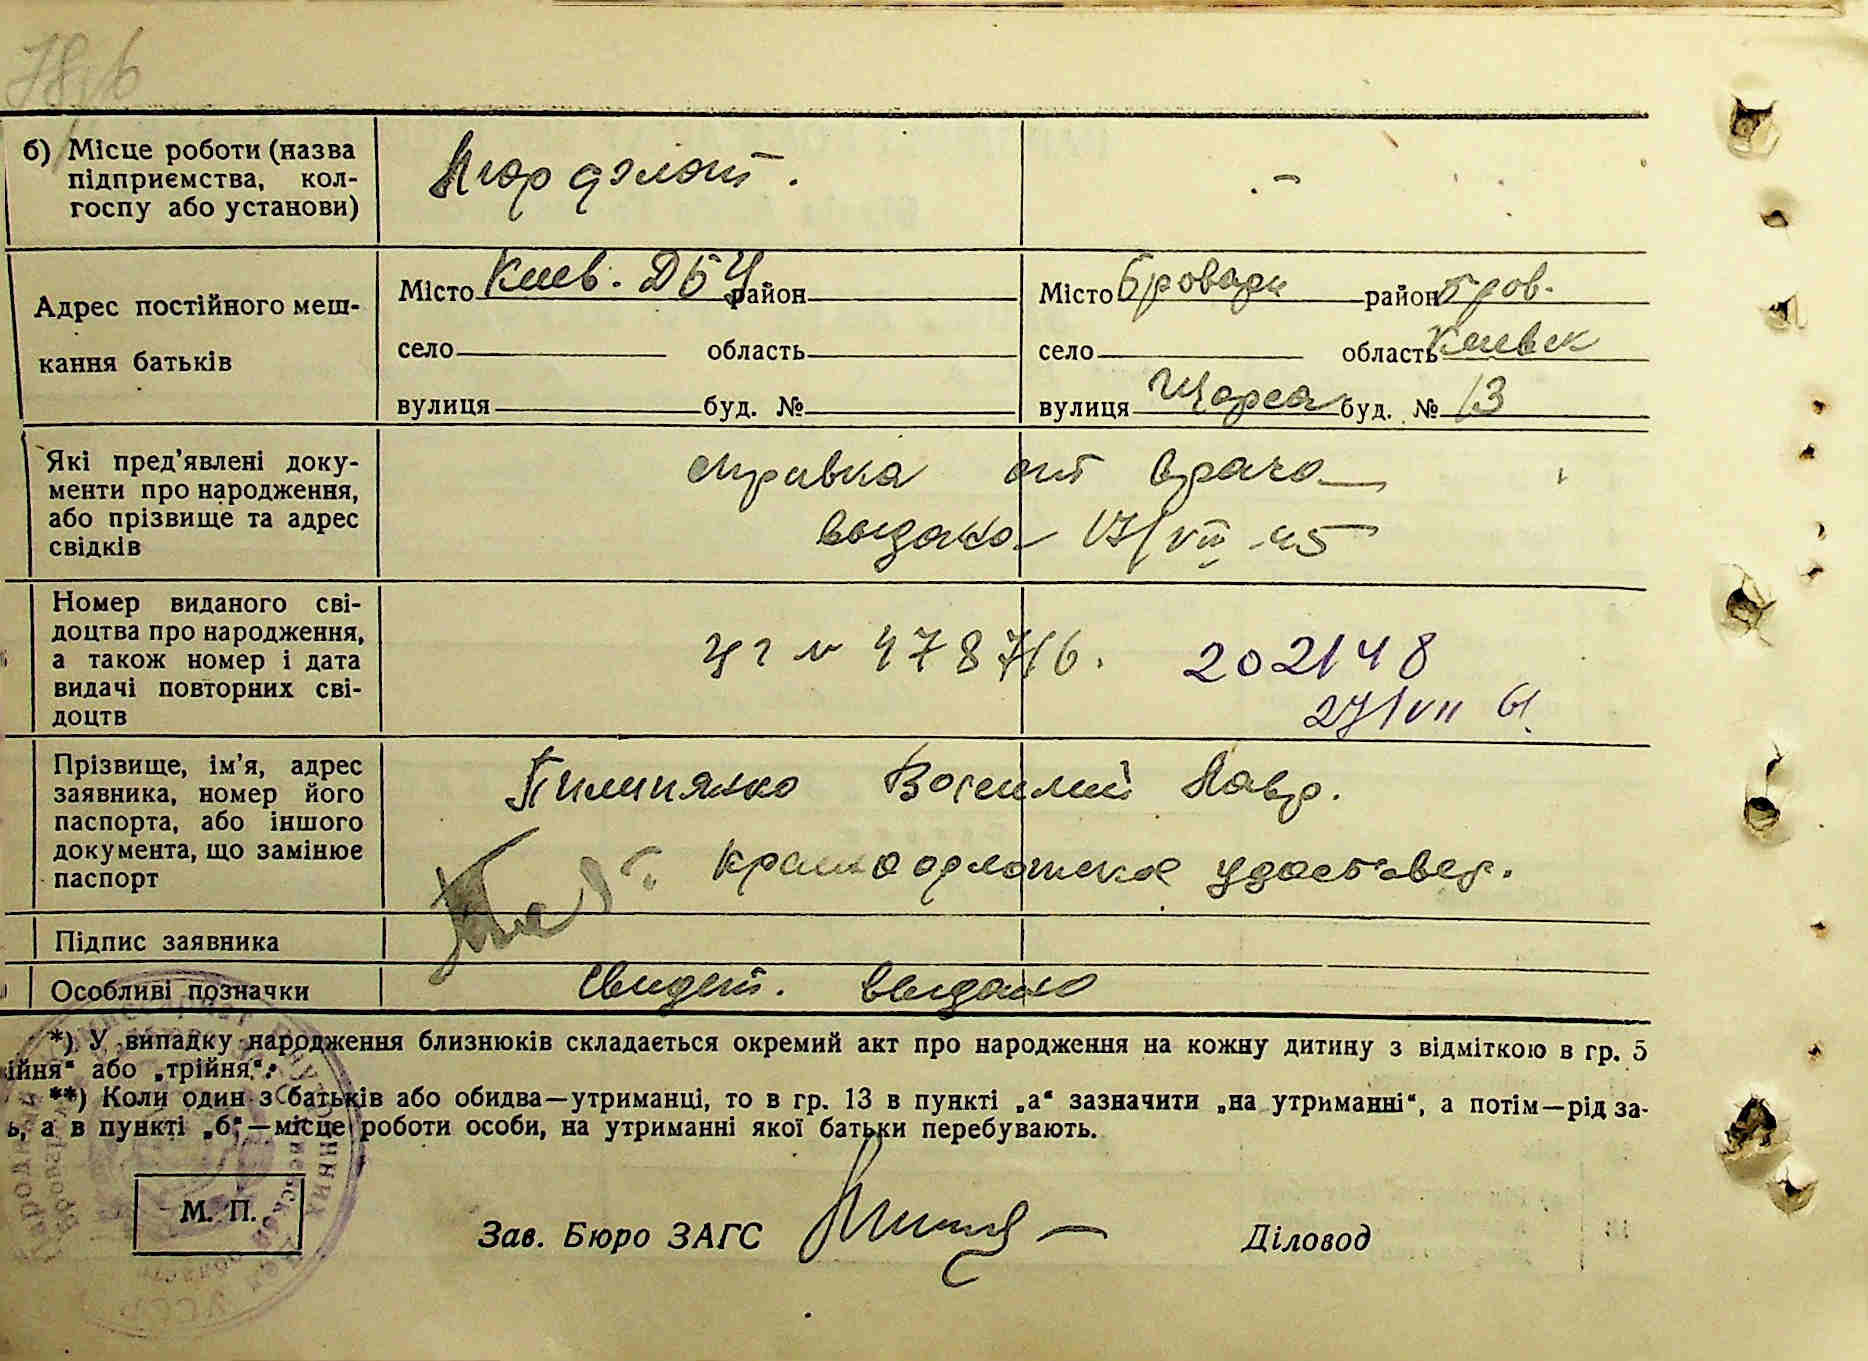 б) Місце роботи (назва
підприємства, кол-
госпу або установи)
Адрес постійного меш-
кання батьків
Місто Киев. ДБЧ район
село область
вулиця буд. №
Місто Бровари район Бров.
село область Киевск
вулиця Щорса буд. № 13
Які пред'явлені доку-
менти про народження,
або прізвище та адрес
свідків
справка от врача
выдано 17/VII-45
Номер виданого сві-
доцтва про народження,
а також номер і дата
видачі повторних сві-
доцтв
202148
27/VII 61.
Прізвище, ім'я, адрес
заявника, номер його
паспорта, або іншого
документа, що замінює
паспорт
Василий Лавр.
Підпис заявника
Особливі позначки
Свидет. выдано
*) У випадку народження близнюків складається окремий акт про народження на кожну дитину з відміткою в гр. 5
ійня“ або „трійня“.
**) Коли один з батьків або обидва—утриманці, то в гр. 13 в пункті „а“ зазначити „на утриманні“, а потім—рід за-
ь, а в пункті „б“—місце роботи особи, на утриманні якої батьки перебувають.
М. П.
Зав. Бюро ЗАГС
Діловод